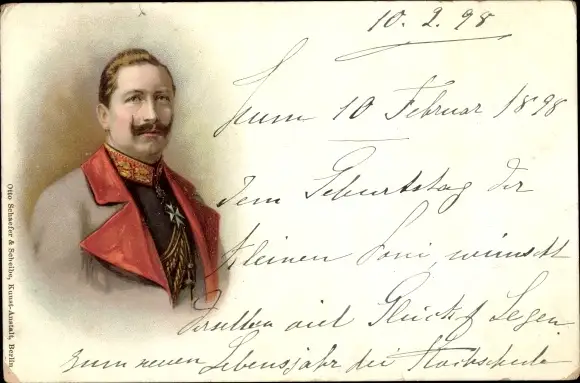 10. 2. 98
Zum 10 Februar 1898
dem Geburtstag der
kleinen Toni, wünscht
derselben viel Glück & Segen
zum neuen Lebensjahr die
Otto Schaefer & Scheibe, Kunst-Anstalt, Berlin.